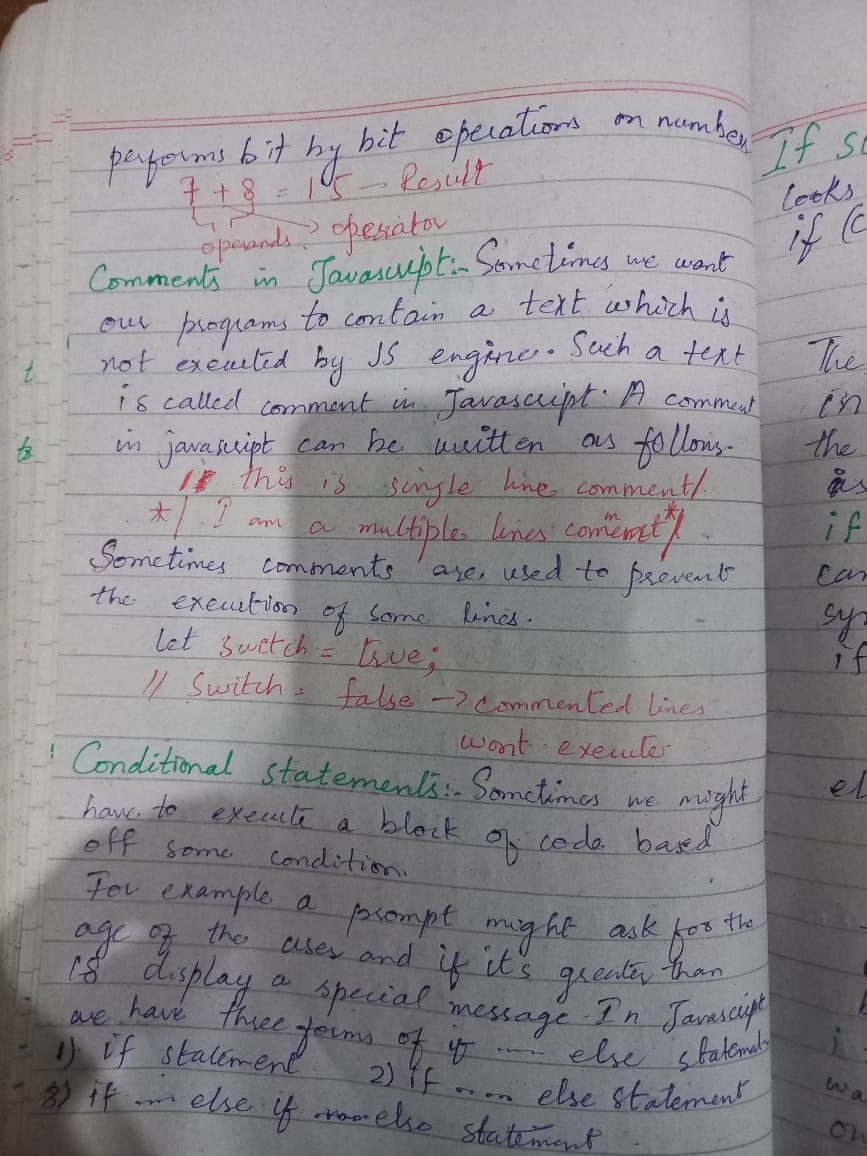 performs bit by bit operations on number
7 + 8 = 15 → Result
operands operator
Comments in Javascript:- Sometimes we want
our programs to contain a text which is
not executed by JS engine. Such a text
is called comment in Javascript. A comment
in javascript can be written as follows-
// this is single line comment/.
*/ I am a multiple lines comemet*/
Sometimes comments are used to prevent
the execution of some lines.
let switch = true;
// Switch = false → commented lines
wont execute
Conditional statements:- Sometimes we might
have to execute a block of code based
off some condition.
For example a prompt might ask for the
age of the user and if it's greater than
18 display a special message. In Javascript
we have three forms of if ---- else statement
1) if statement 2) if .... else statement
3) if --- else if ---- else statement
If st
looks
if (
The
in
the
as
if
can
syn
if
el
i
wa
on